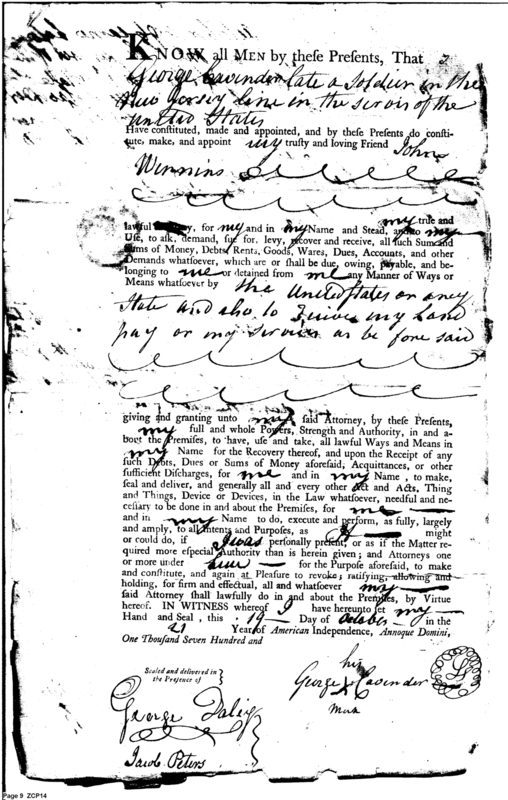 KNOW all MEN by these Presents, That I
George Cavender late a Soldier in the
New Jersey line in the servis of the
United States
Have constituted, made and appointed, and by these Presents do consti-
tute, make, and appoint my trusty and loving Friend John
Winnins
my true and
lawful for my and in my Name and Stead, and to my
Use, to ask, demand, sue for, levy, recover and receive, all such Sum and
Sums of Money, Debts, Rents, Goods, Wares, Dues, Accounts, and other
Demands whatsoever, which are or shall be due, owing, payable, and be-
longing to me or detained from me any Manner of Ways or
Means whatsoever by the United States or aney
State and also to my Land
pay or my as be fore said
giving and granting unto my said Attorney, by these Presents,
my full and whole Powers, Strength and Authority, in and a-
bout the Premises, to have, use and take, all lawful Ways and Means in
my Name for the Recovery thereof, and upon the Receipt of any
such Debts, Dues or Sums of Money aforesaid, Acquittances, or other
sufficient Discharges, for me and in my Name, to make,
seal and deliver, and generally all and every other Act and Acts, Thing
and Things, Device or Devices, in the Law whatsoever, needful and ne-
cessary to be done in and about the Premises, for me
and in my Name to do, execute and perform, as fully, largely
and amply, to all Intents and Purposes, as might
or could do, if I was personally present, or as if the Matter re-
quired more especial Authority than is herein given; and Attorneys one
or more under for the Purpose aforesaid, to make
and constitute, and again at Pleasure to revoke; ratifying, allowing and
holding, for firm and effectual, all and whatsoever my
said Attorney shall lawfully do in and about the Premises, by Virtue
hereof. IN WITNESS whereof I have hereunto set my
Hand and Seal, this 19 Day of October in the
21 Year of American Independence, Annoque Domini,
One Thousand Seven Hundred and
Sealed and delivered in
the Presence of
his
George X Cavender
Mark
George
Jacob Peters
Page 9 ZCP14